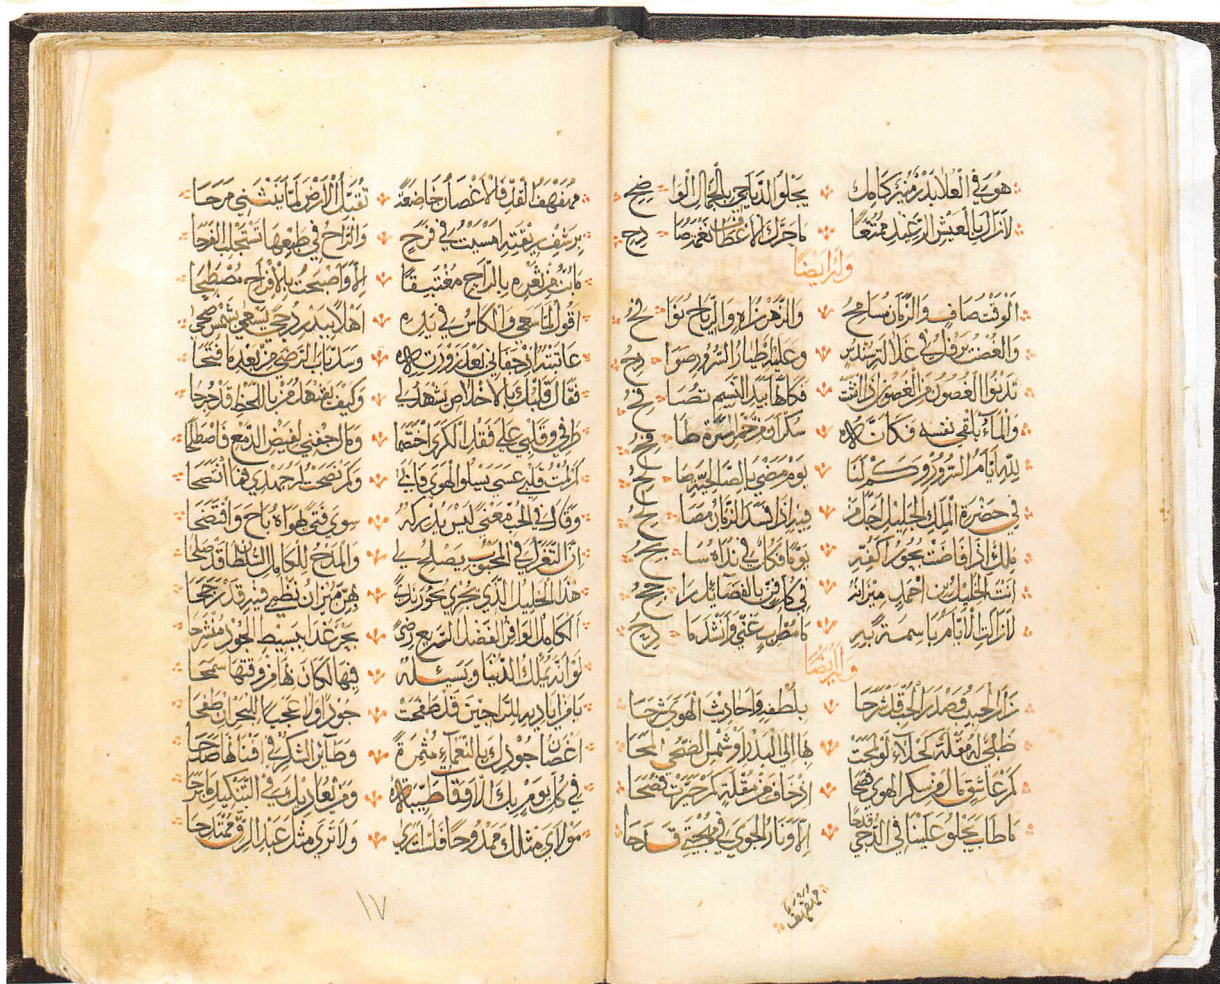 هو في العلا بدر منير كامل يجلو الدياجي بالجمال الواضح
لا زال بالعيش الرغيد ممتعا ما حرك الأعطاف نغم صادح
وله أيضا
الوقت صاف والزمان مسامح والزهر زاه والرياح نوافح
والغصن يرفل في غلالة سندس وعليه أطيار السرور صوادح
تدنو الغصون من الغصون إذا انثنت فكأنها بيد النسيم تصافح
والماء يلقي نفسه فكأنه سكران من خمر المسرة طافح
لله أيام السرور وكم لنا يوم مضى بالصالحية صالح
في حضرة الملك الجليل أجل من فيه إذا فسد الزمان مصالح
ملك إذا فاضت بحور أكفه يوما فكل في نداه سابح
أنت الخليل بن أحمد ميزانه في كل فن بالفضائل راجح
لا زالت الأيام باسمة به ما مطرب غنى وأنشد مادح
وله أيضا
زار الحبيب وصدر الحب قد شرحا بلطفه وأحاديث الهوى شرحا
ظبي له مقلة كحلاء لو لمحت بها إلى البدر أو شمس الضحى لمحا
كم عاشق مال من سكر الهوى فصحا إذ خاف من مقلة كم حيرت فصحا
ما طاب يجلو علينا في الدجى قدحا إلا ونار الجوى في مهجتي قدحا
مهفهف
مهفهف القد فالأغصان خاضعة تقبل الأرض لما ينثني مرحا
برشف ريقته أمسيت في فرح والراح في طبعها تستجلب الفرحا
ما بت من ثغره بالراح مغتبقا إلا وأصبحت بالأفراح مصطبحا
أقول لما سعى والكاس في يده أهلا ببدر دجى يسعى بشمس ضحى
عاتبته إذ جفاني بعد زورته وسد باب الرضى من بعد ما فتحا
فقال قلبك بالإخلاص يشهد لي وكيف يفهم من باللحظ قد جرحا
طرفي وقلبي على فقد الكرى اختصما ومال جفني لفيض الدمع فاصطلحا
ألزمت قلبي عسى يسلو الهوى فأبى وكم نصحت له جهدي فما انتصحا
وقال في الحب معنى ليس يدركه سوى فتى بهواه باح وافتضحا
إن التغزل في المحبوب يصلح لي والمدح للكامل السلطان قد صلحا
هذا الخليل الذي بحرى بحور ندى بهن ميزان نظمي فيه قد رجحا
الكامل الوافر الفضل السريع ندى بحر غدا ببسيط الجود منشرحا
لو أنه يملك الدنيا ويسئله فيها لكان بها من وقتها سمحا
يا من أياديه للراجين قد طفحت جودا ولا عجبا للبحر إن طفحا
أغصان جودك بالنعماء مثمرة وطائر الشكر في أفنانها صدحا
في كل يوم يريك الأفق طيبه ومن يعاديك في التنكيد ما برحا
مولاي مثلك ممدوحا فلست أرى ولا ترى مثل عبد الرق ممتدحا
١٧